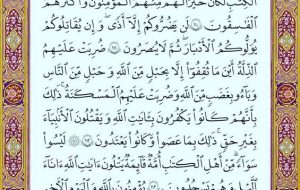 ٱلْكِتَٰبِ لَكَانَ خَيْرًا لَّهُم مِّنْهُمُ ٱلْمُؤْمِنُونَ وَأَكْثَرُهُمُ
ٱلْفَٰسِقُونَ ١١٠ لَن يَضُرُّوكُمْ إِلَّآ أَذًى وَإِن يُقَٰتِلُوكُمْ
يُوَلُّوكُمُ ٱلْأَدْبَارَ ثُمَّ لَا يُنصَرُونَ ١١١ ضُرِبَتْ عَلَيْهِمُ
ٱلذِّلَّةُ أَيْنَ مَا ثُقِفُوٓا۟ إِلَّا بِحَبْلٍ مِّنَ ٱللَّهِ وَحَبْلٍ مِّنَ ٱلنَّاسِ
وَبَآءُو بِغَضَبٍ مِّنَ ٱللَّهِ وَضُرِبَتْ عَلَيْهِمُ ٱلْمَسْكَنَةُ ذَٰلِكَ
بِأَنَّهُمْ كَانُوا۟ يَكْفُرُونَ بِـَٔايَٰتِ ٱللَّهِ وَيَقْتُلُونَ ٱلْأَنۢبِيَآءَ
بِغَيْرِ حَقٍّ ذَٰلِكَ بِمَا عَصَوا۟ وَّكَانُوا۟ يَعْتَدُونَ ١١٢ لَيْسُوا۟
سَوَآءً مِّنْ أَهْلِ ٱلْكِتَٰبِ أُمَّةٌ قَآئِمَةٌ يَتْلُونَ ءَايَٰتِ ٱللَّهِ ءَانَآءَ
ٱلَّيْلِ وَهُمْ يَسْجُدُونَ ١١٣ يُؤْمِنُونَ بِٱللَّهِ وَٱلْيَوْمِ ٱلْءَاخِرِ